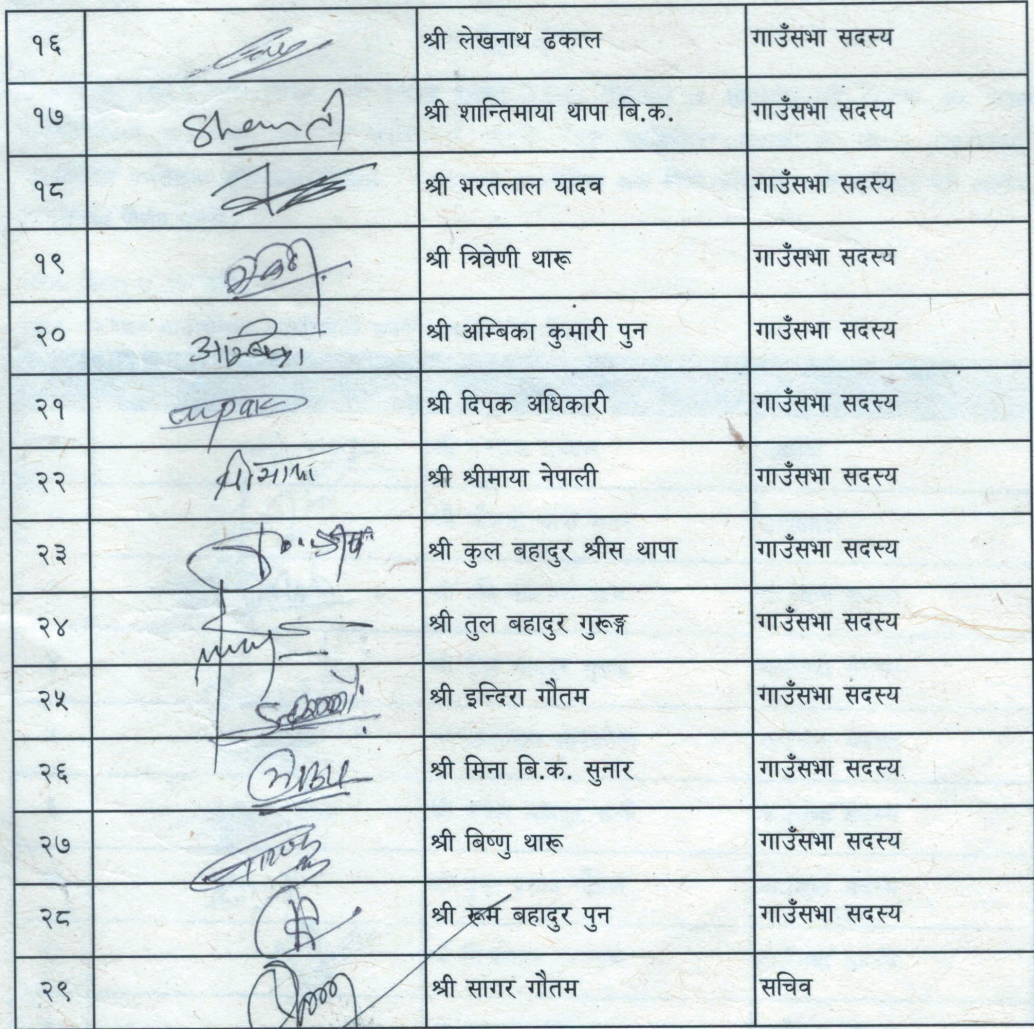 १६ श्री लेखनाथ ढकाल गाउँसभा सदस्य
१७ श्री शान्तिमाया थापा बि.क. गाउँसभा सदस्य
१८ श्री भरतलाल यादव गाउँसभा सदस्य
१९ श्री त्रिवेणी थारू गाउँसभा सदस्य
२० श्री अम्बिका कुमारी पुन गाउँसभा सदस्य
२१ श्री दिपक अधिकारी गाउँसभा सदस्य
२२ श्रीमाया श्री श्रीमाया नेपाली गाउँसभा सदस्य
२३ श्री कुल बहादुर श्रीस थापा गाउँसभा सदस्य
२४ श्री तुल बहादुर गुरूङ्ग गाउँसभा सदस्य
२५ श्री इन्दिरा गौतम गाउँसभा सदस्य
२६ श्री मिना बि.क. सुनार गाउँसभा सदस्य
२७ श्री बिष्णु थारू गाउँसभा सदस्य
२८ श्री रूम बहादुर पुन गाउँसभा सदस्य
२९ श्री सागर गौतम सचिव